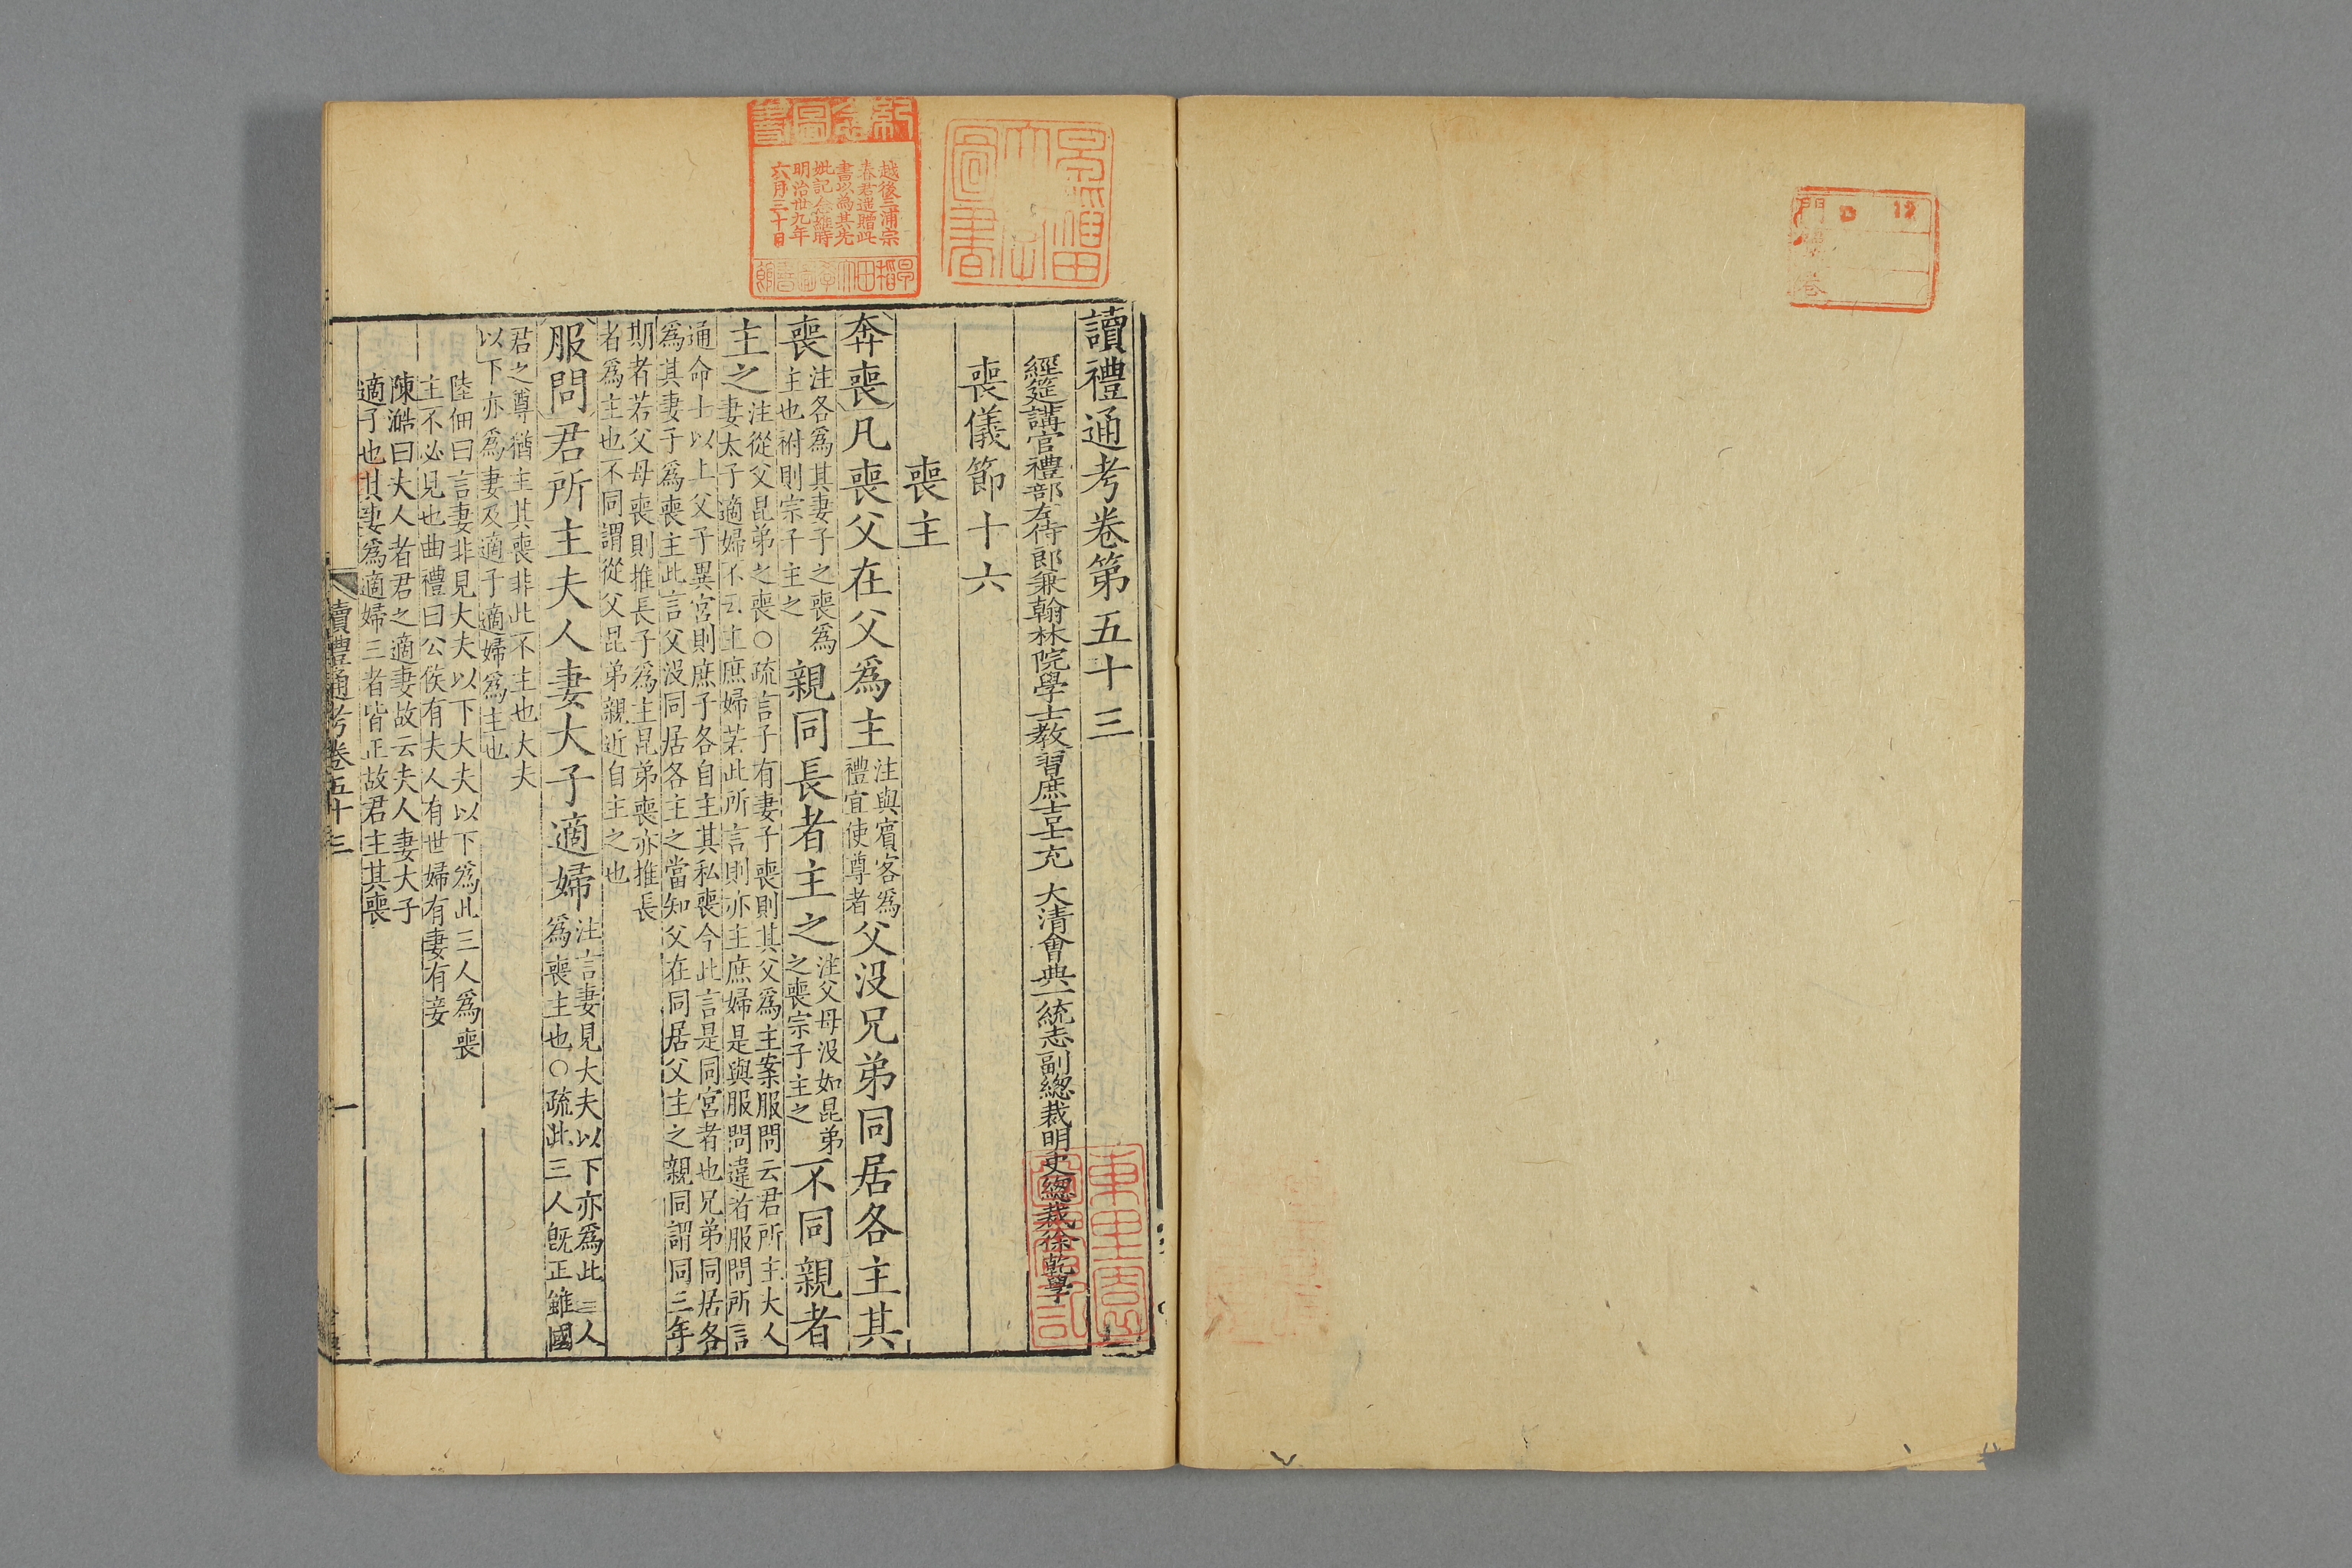 門 12
號
卷
早稲田大学圖書
紀念圖書
越後三浦宗
春君遥贈此
書以為其先
妣記念維時
明治卅九年
六月三十日
早稻田大學圖書館
讀禮通考卷第五十三
經筵講官禮部左侍郎兼翰林院學士教習庶吉士充 大清會典一統志副總裁明史總裁徐乾學
喪儀節十六
喪主
奔喪凡喪父在父爲主
注與賓客爲
禮宜使尊者
父沒兄弟同居各主其
喪
注各爲其妻子之喪爲
主也祔則宗子主之
親同長者主之
注父母沒如昆弟
之喪宗子主之
不同親者
主之
注從父昆弟之喪○疏言子有妻子喪則其父爲主案服問云君所主夫人
妻太子適婦不云主庶婦若此所言則亦主庶婦是與服問違者服問所言
通命士以上父子異宮則庶子各自主其私喪今此言是同宮者也兄弟同居各
爲其妻子爲喪主此言父沒同居各主之當知父在同居父主之親同謂同三年
期者若父母喪則推長子爲主昆弟喪亦推長
者爲主也不同謂從父昆弟親近自主之也
服問君所主夫人妻大子適婦
注言妻見大夫以下亦爲此三人
爲喪主也○疏此三人既正雖國
君之尊猶主其喪非此不主也大夫
以下亦爲妻及適子適婦爲主也
陸佃曰言妻非見大夫以下大夫以下爲此三人爲喪
主不必見也曲禮曰公侯有夫人有世婦有妻有妾
陳澔曰夫人者君之適妻故云夫人妻大子
適子也其妻爲適婦三者皆正故君主其喪
讀禮通考卷五十三
一